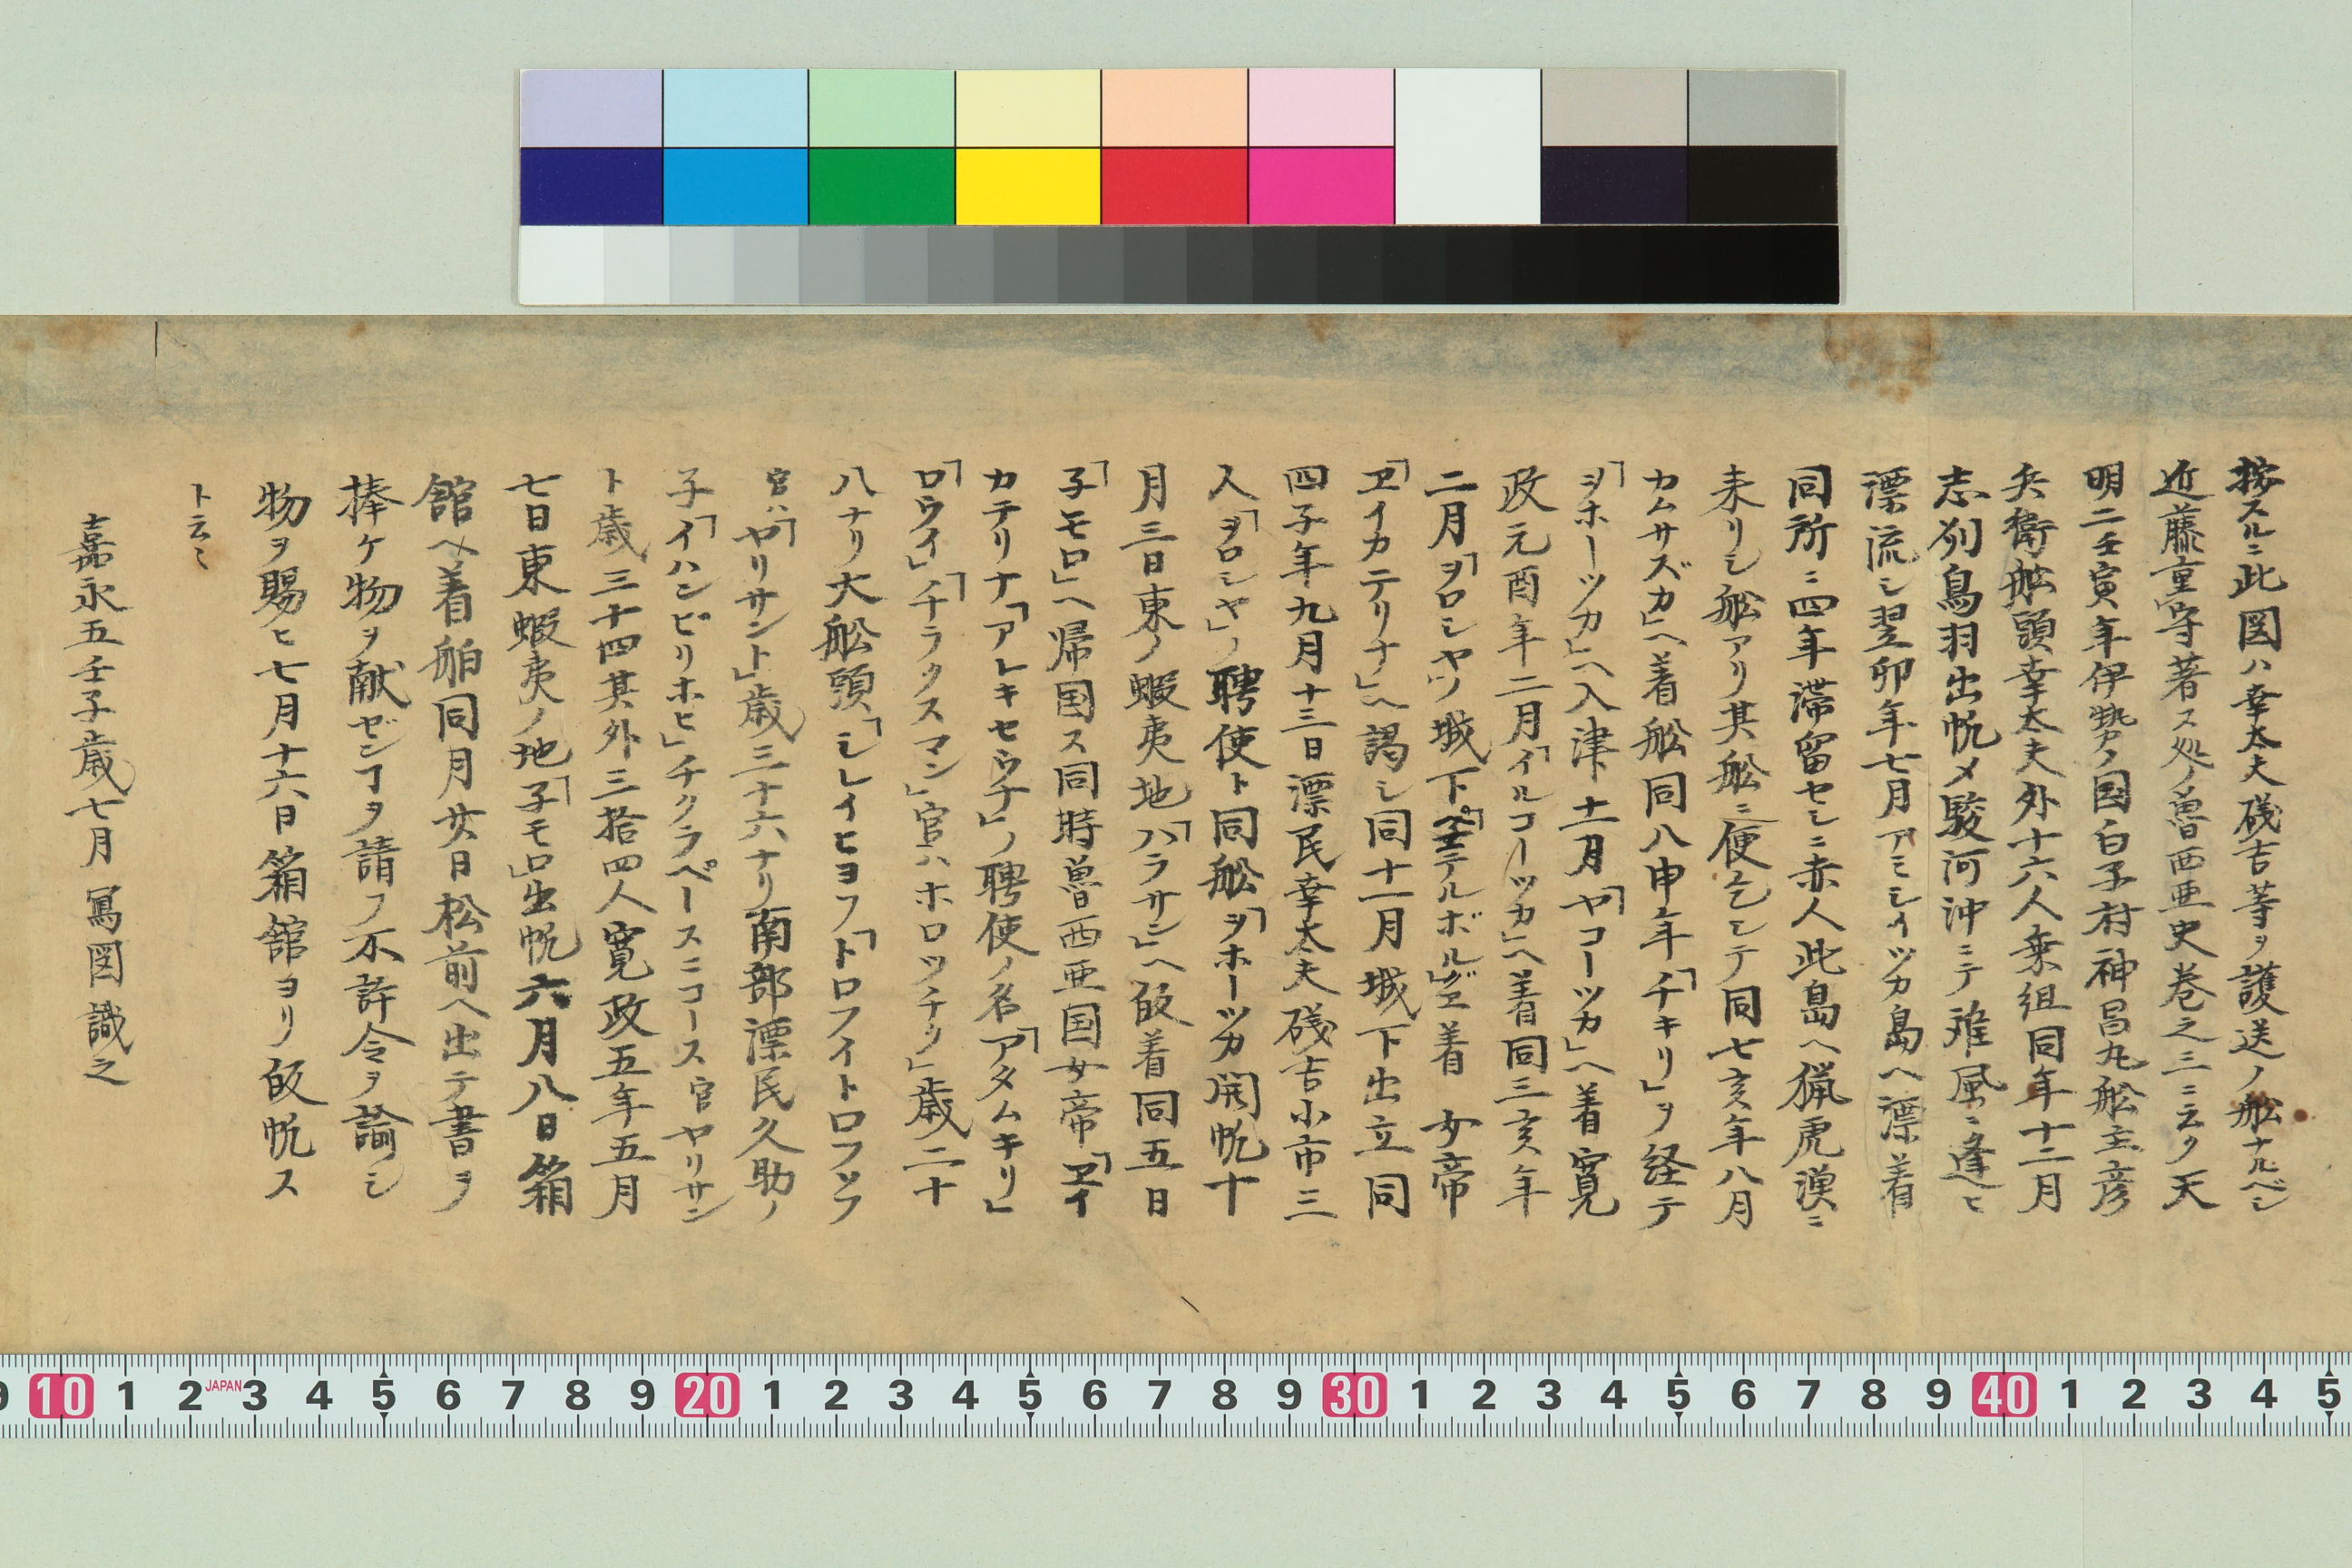 按スルニ此図ハ幸太夫磯吉等ヲ護送ノ舩ナルベシ
近藤重守著ス処ノ魯西亜史巻之三ニ云ク天
明二壬寅年伊勢ノ国白子村神昌丸舩主彦
兵衛舩頭幸太夫外十六人乗組同年十二月
志刕鳥羽出帆〆駿河沖ニテ难風ニ逢ヒ
漂流シ翌卯年七月アミシイツカ島ヘ漂着
同所ニ四年滞留セシニ赤人此島ヘ猟虎漁ニ
来リシ舩アリ其舩ニ便乞シテ同七亥年八月
カムサズカ」ヘ着舩同八申年「チキリ」ヲ経テ
「ヲホーツカ」ヘ入津十一月「ヤコーツカ」ヘ着寛
政元酉年二月「イルコーツカ」ヘ着同三亥年
二月「ヲロシヤ」ノ城下「ペエテルボルグ」エ着 女帝
「ヱイカテリナ」ヘ謁シ同十一月城下出立同
四子年九月十三日漂民幸太夫磯吉小市三
人「ヲロシヤ」ノ聘使ト同舩「ヲホーツカ開帆十
月三日東ノ蝦夷地「ハラサン」ヘ皈着同五日
「子モロ」ヘ帰国ス同時魯西亜国女帝「ヱイ
カテリナ「アレキセウナ」ノ聘使ノ名「アタムキリ」
「ロウイ」「チラクスマン」官ハホロツチリ」歳二十
八ナリ大舩頭「シレイヒヨフ「トロフイトロフツフ
官ハ「ヤリサント」歳三十六ナリ南部漂民久助ノ
子「イハンビリホヒ」チクラペースニコース官ヤリサン
ト歳三十四其外三拾四人寛政五年五月
七日東蝦夷ノ地「子モロ」出帆六月八日箱
舘ヘ着舶同月廿日松前ヘ出テ書ヲ
捧ケ物ヲ献ゼンヿヲ請フ不許令ヲ諭シ
物ヲ賜ヒ七月十六日箱舘ヨリ皈帆ス
ト云々
嘉永五壬子歳七月冩図識之
10 1 2 JAPAN 3 4 5 6 7 8 9 20 1 2 3 4 5 6 7 8 9 30 1 2 3 4 5 6 7 8 9 40 1 2 3 4 5